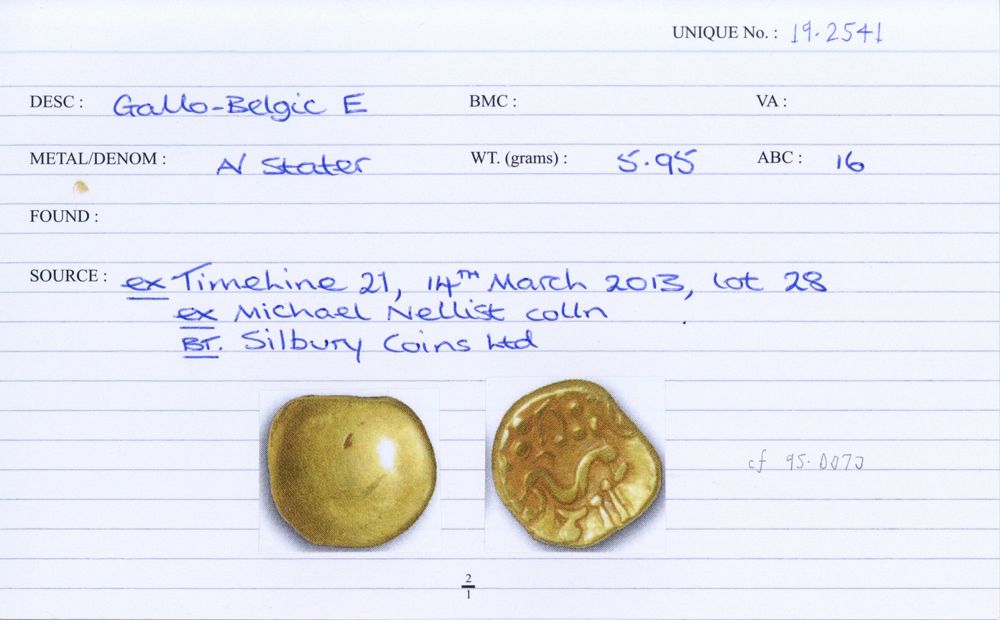 UNIQUE No. : 19.2541
DESC : Gallo-Belgic E BMC : VA :
METAL/DENOM : AV Stater WT. (grams) : 5.95 ABC : 16
FOUND :
SOURCE : ex Timeline 21, 14TH March 2013, lot 28
ex Michael Nellist colln
BT. Silbury Coins Ltd
cf 95.0073
2
1